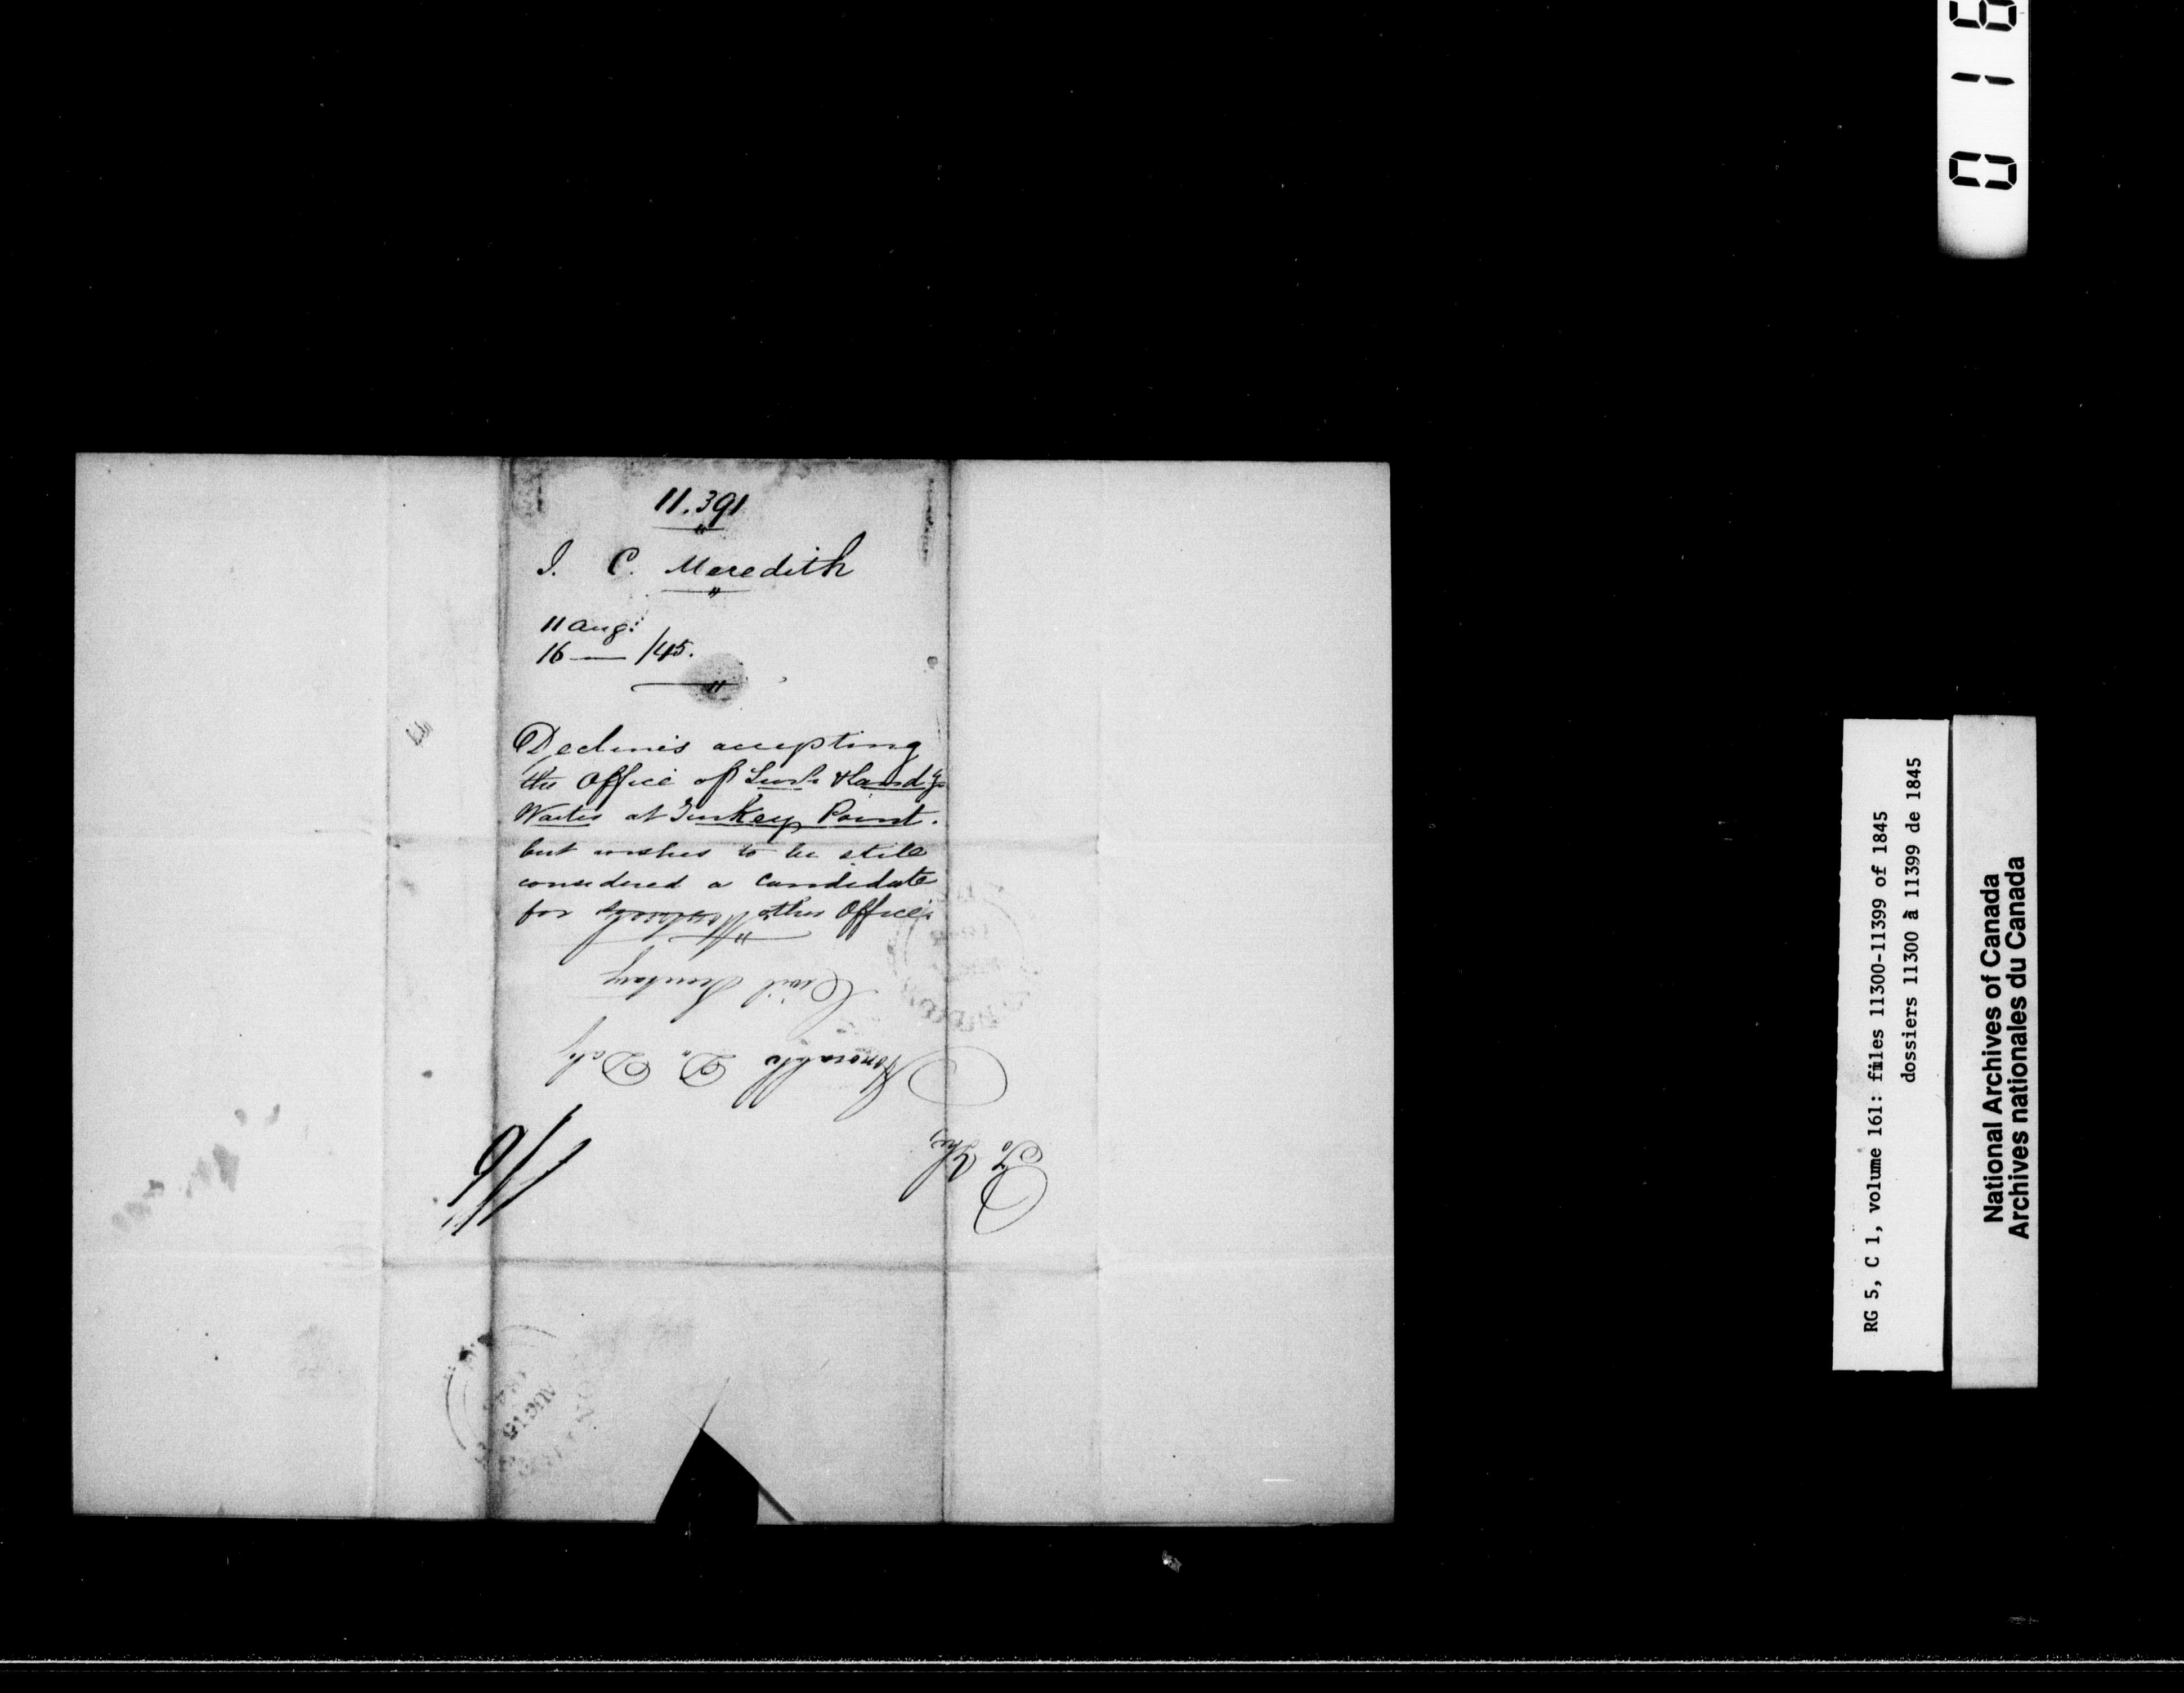 11.391
J. C. Meredith
11 Aug:
16 — /45.
Declines accepting
the Office of & Land'g
Waiter at Turkey Point.
but wishes to be still
considered a candidate
for some other Office.
To The
Honorable D. Daly
Civil Secretary
Montreal
1/6
AUG 15
RG 5, C 1, volume 161: files 11300-11399 of 1845
dossiers 11300 à 11399 de 1845
National Archives of Canada
Archives nationales du Canada
0 1 6